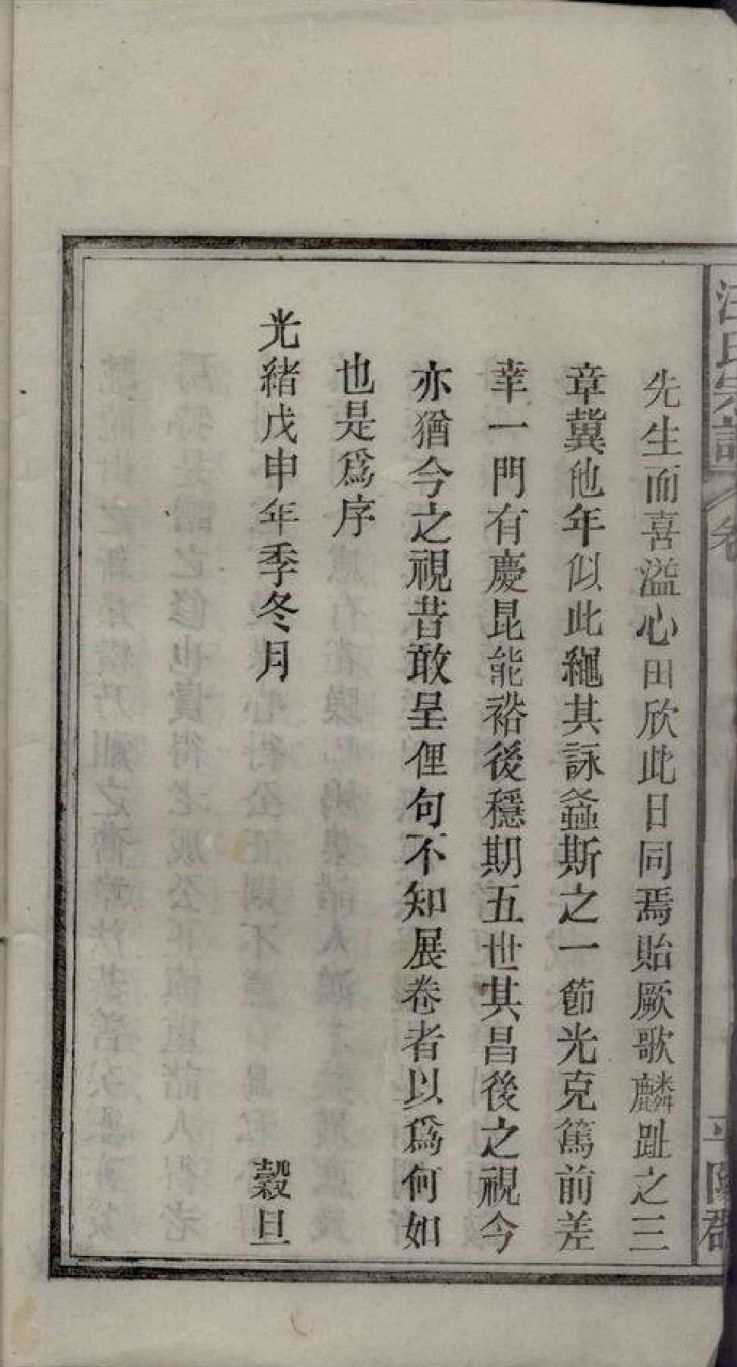 汪氏宗譜 卷
平陽郡
先生而喜溢心田欣此日同焉貽厥歌麟趾之三
章冀他年似此繩其詠螽斯之一節光克篤前差
幸一門有慶昆能裕後穩期五世其昌後之視今
亦猶今之視昔敢呈俚句不知展卷者以爲何如
也是爲序
光緒戊申年季冬月 穀旦